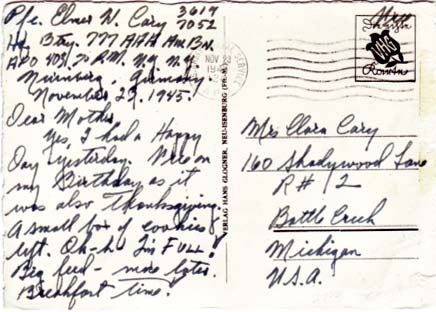 Pfc. Elmer W. Cary 3619
7052
Hq. Btry. 777 AAA AW Bn.
APO 403, % P.M. N.Y. N.Y.
Nürnburg, Germany
November 23, 1945.
Dear Mother
Yes, I had a Happy
Day yesterday. Were on
my Birthday as it
was also Thanksgiving.
A small box of cookies
left. Oh-h I'm FULL!
Big feed - more later.
Breakfast time!
NOV 23
VERLAG HANS GLOGNER, NEU-ISENBURG
Mrs Clara Cary
160 Shadywood Lane
R # 12
Battle Creek
Michigan
U.S.A.